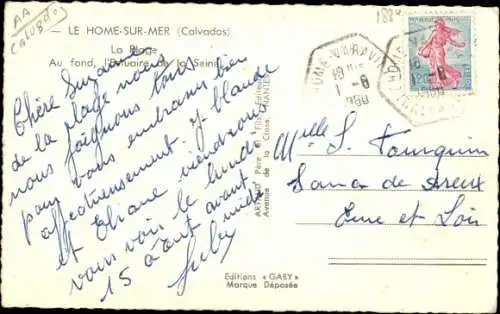 AA
CALVADOS
LE HOME-SUR-MER (Calvados)
La Plage
Au fond, l'Estuaire de la Seine
Chère Suzanne
de la plage nous
nous joignons tous
pour vous embrasser bien
affectueusement. Y. blande
et Eliane viendront
vous voir le lundi
15 août avant
midi
Editions « GABY »
Marque Déposée
ARTAUD Père et Fils, Editeurs
Avenue de la Close, NANTES
HOME-VARAVILLE
18H
1 -8
1960
Melle S. Tourquin
de Dreux
Eure et Loir